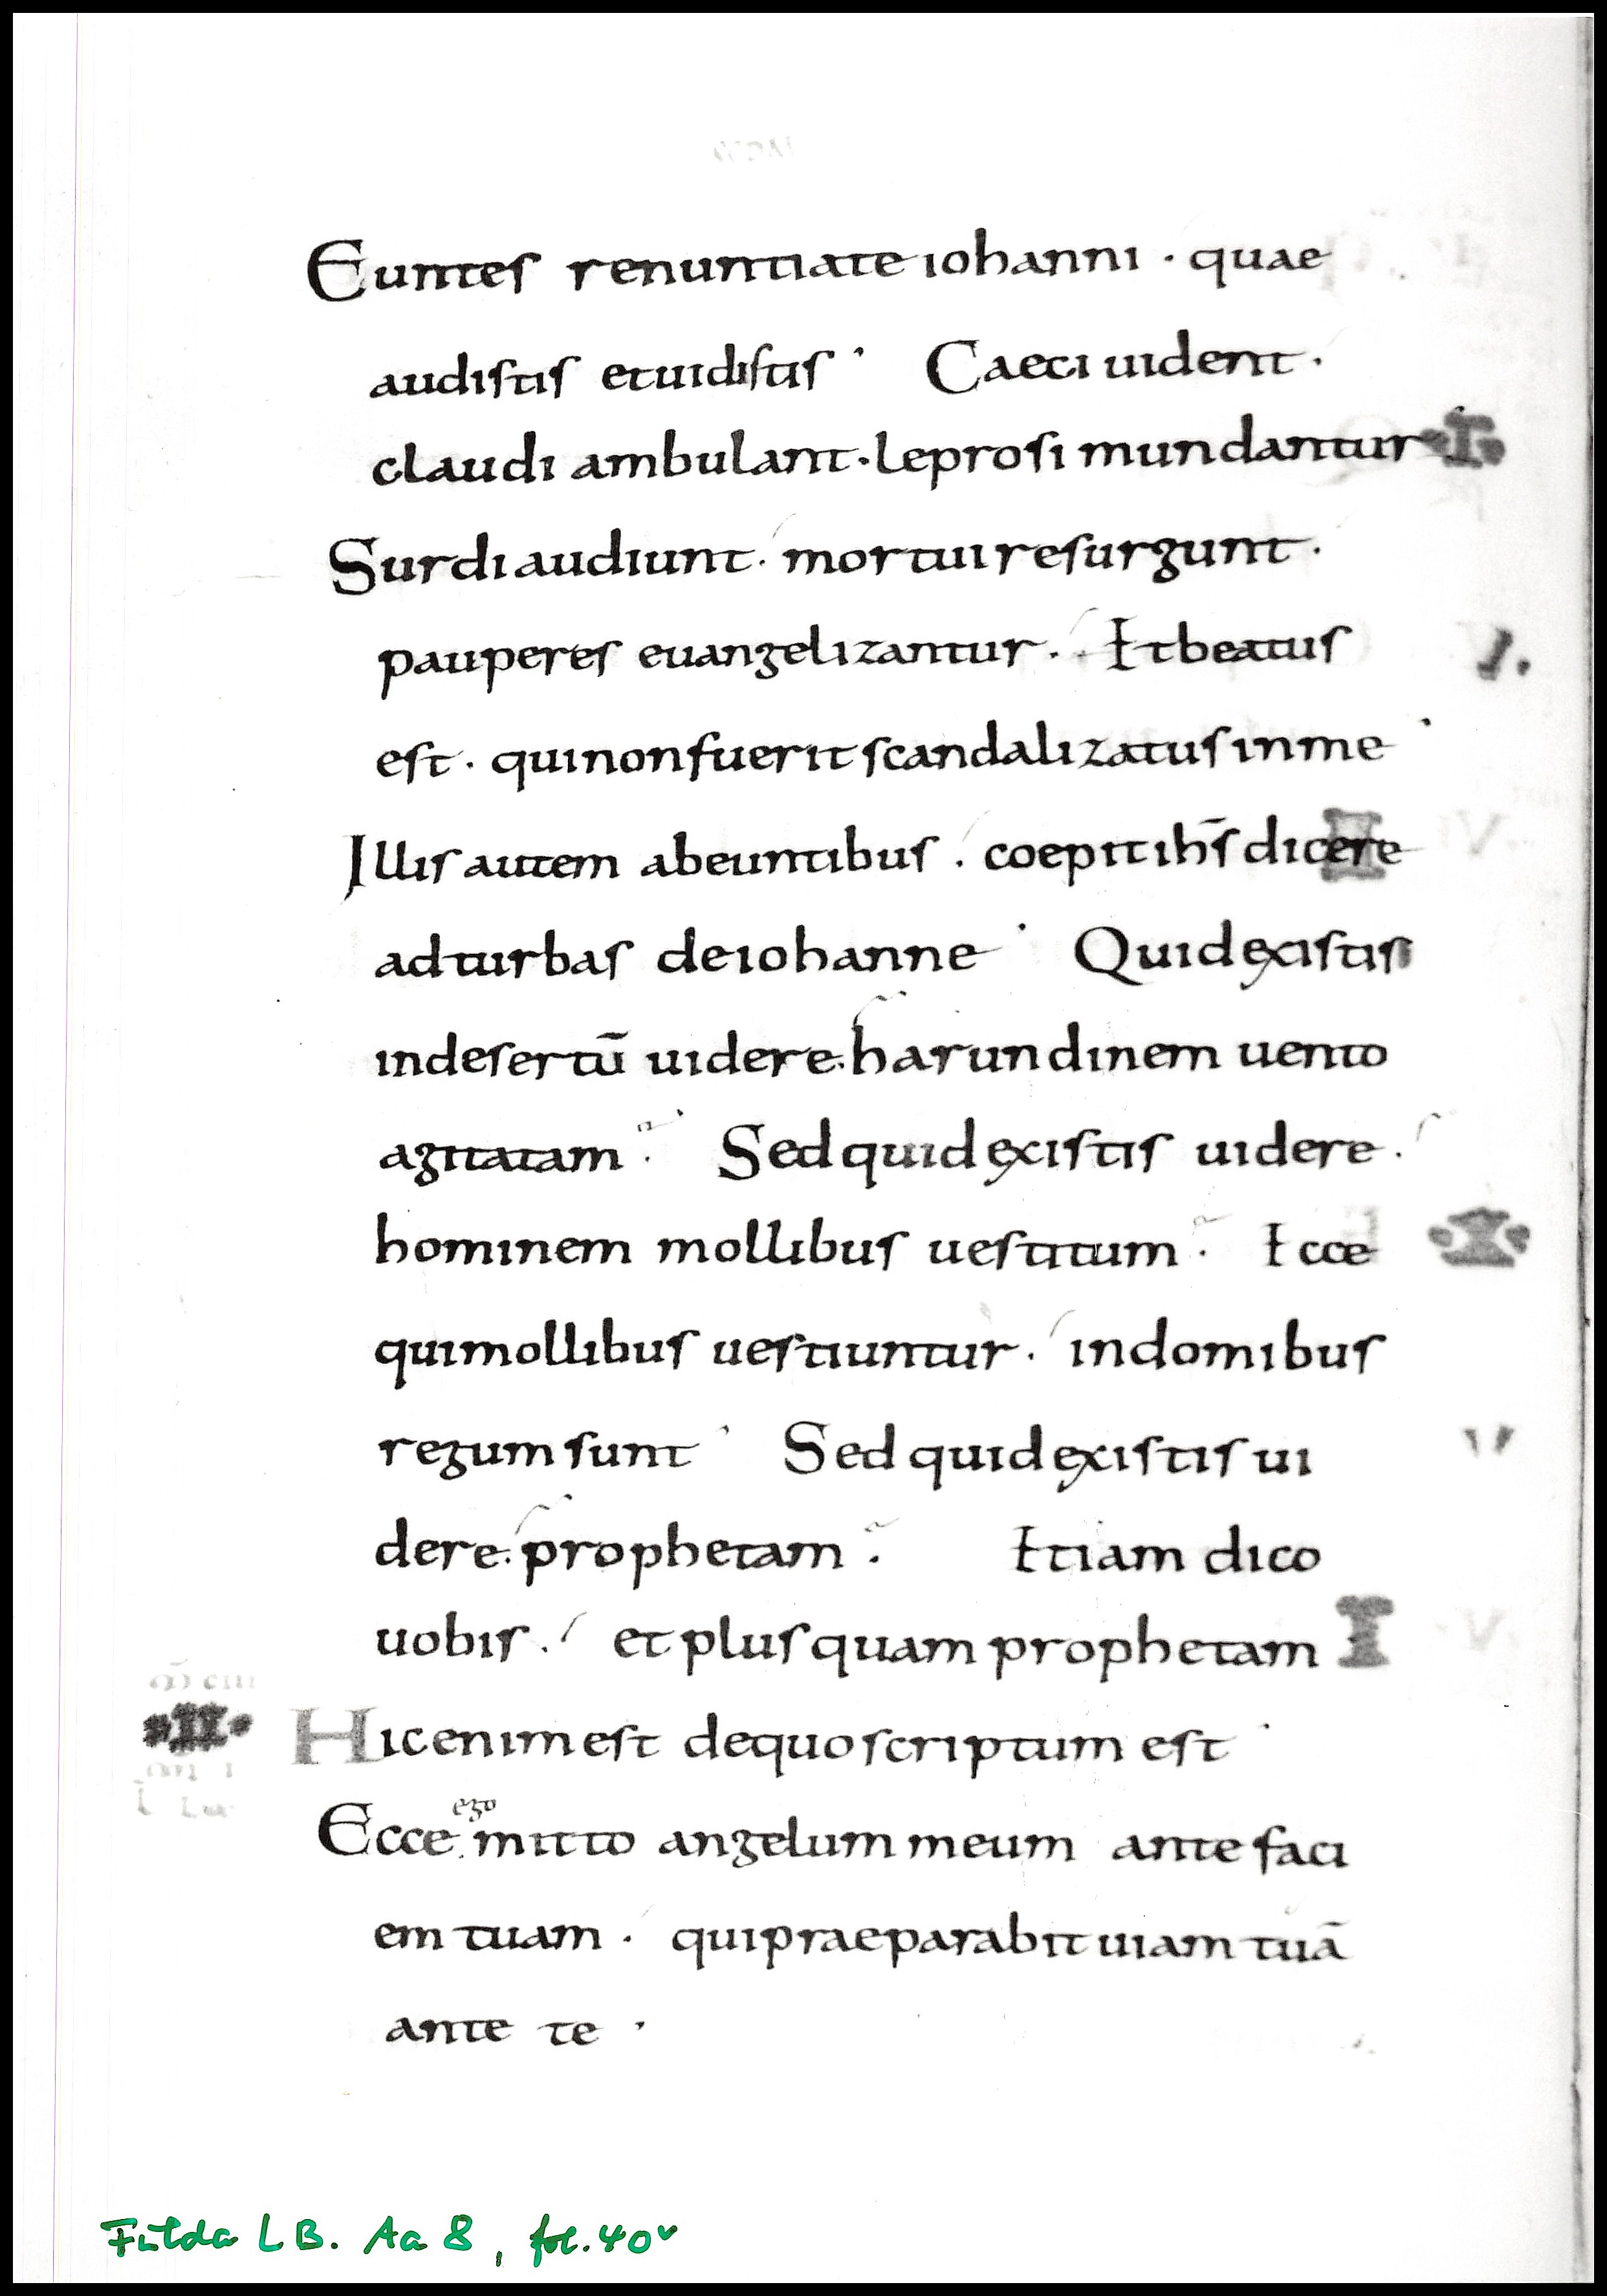 Euntes renuntiate iohanni · quae
audistis etuidistis · Caeci uident ·
claudi ambulant · leprosi mundantur
Surdi audiunt · mortui resurgunt ·
pauperes euangelizantur · Et beatus
est · qui non fuerit scandalizatus in me ·
Illis autem abeuntibus · coepit ihs̄ dicere
ad turbas de iohanne · Quid existis
in desertū uidere · harundinem uento
agitatam · Sed quid existis uidere ·
hominem mollibus uestitum · Ecce
qui mollibus uestiuntur · in domibus
regum sunt · Sed quid existis ui
dere · prophetam · Etiam dico
uobis · et plus quam prophetam
Hic enim est de quo scriptum est ·
ego
Ecce mitto angelum meum ante faci
em tuam · qui praeparabit uiam tuā
ante te ·
Fulda LB. Aa 8, fol. 40v